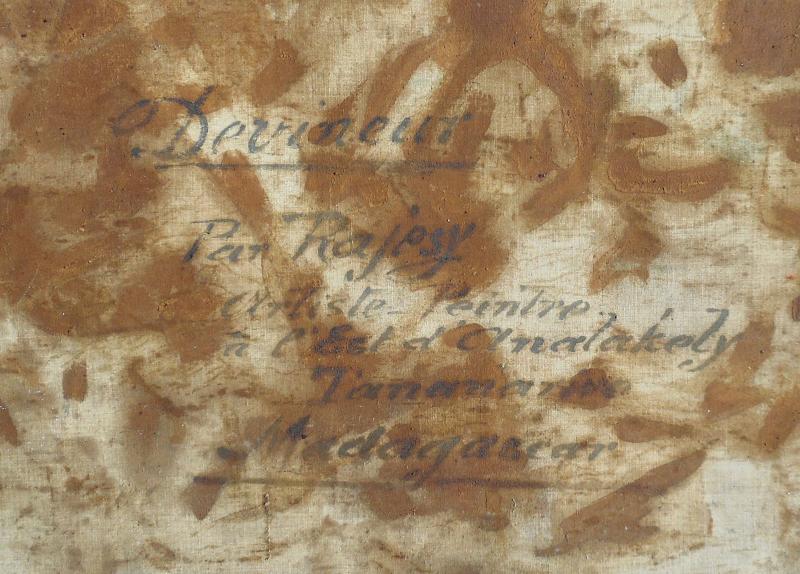 Devineur
Par Rajosy
Artiste-Peintre
à l'Est d'Analakely
Tananarive
Madagascar